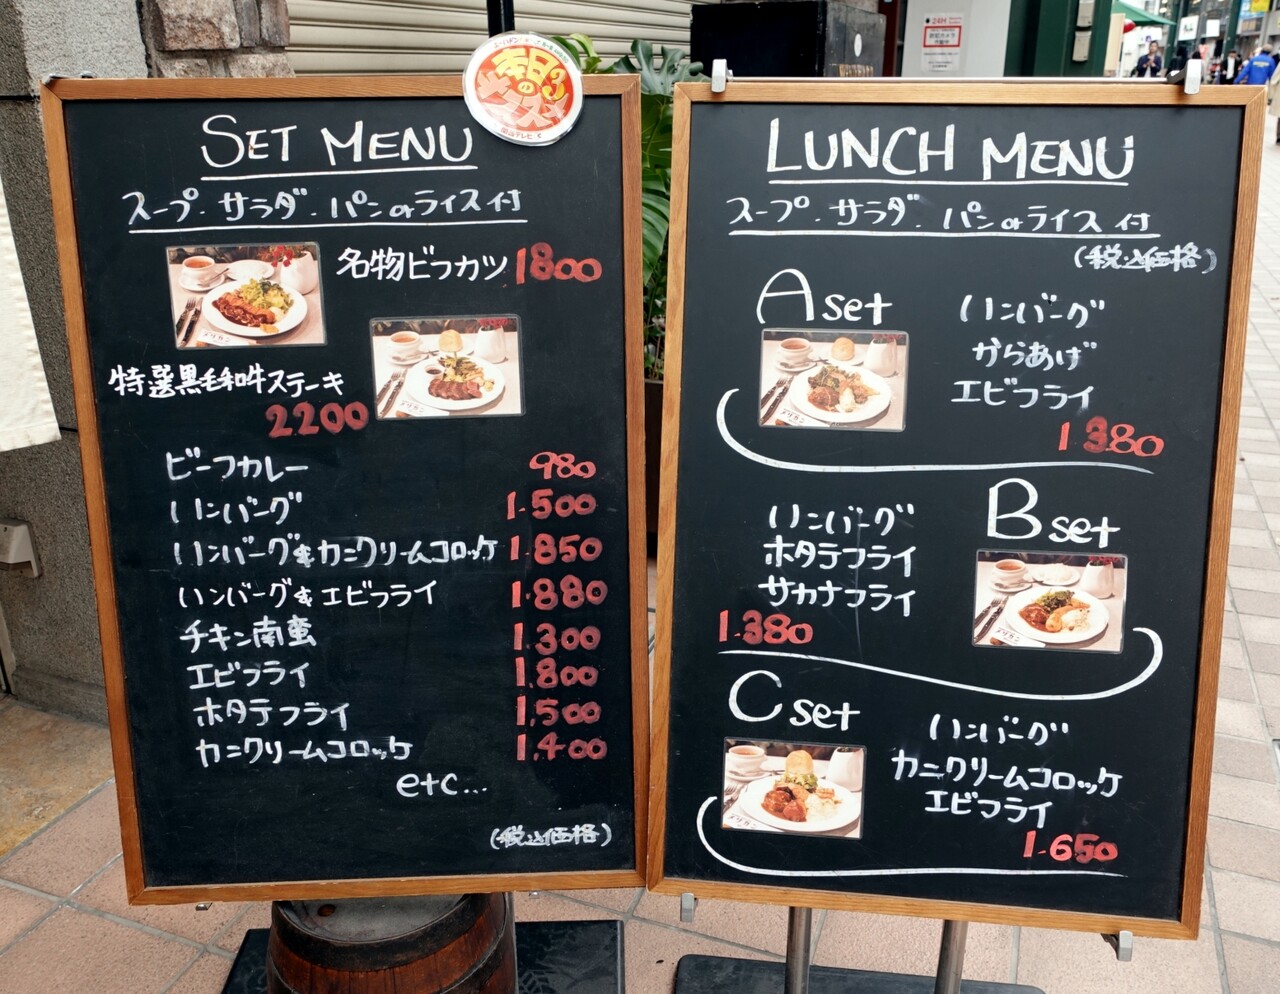 SET MENU
スープ・サラダ・パンorライス付
名物ビフカツ 1800
特選黒毛和牛ステーキ
2200
ビーフカレー 980
ハンバーグ 1.500
ハンバーグ&カニクリームコロッケ 1.850
ハンバーグ&エビフライ 1.880
チキン南蛮 1.300
エビフライ 1.800
ホタテフライ 1.500
カニクリームコロッケ 1.400
etc...
(税込価格)
LUNCH MENU
スープ・サラダ・パンorライス付
(税込価格)
A set
ハンバーグ
からあげ
エビフライ
1.380
B set
ハンバーグ
ホタテフライ
サカナフライ
1.380
C set
ハンバーグ
カニクリームコロッケ
エビフライ
1.650
24H